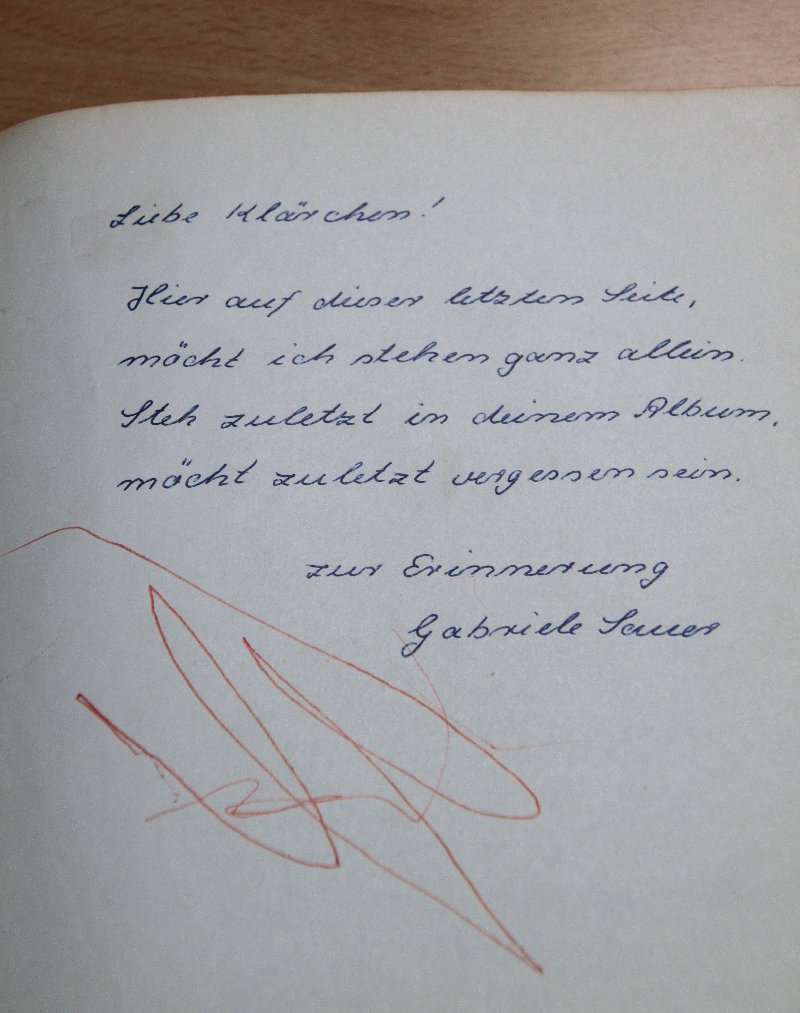 Liebe Klärchen!
Hier auf dieser letzten Seite,
möcht ich stehen ganz allein.
Steh zuletzt in deinem Album,
möcht zuletzt vergessen sein.
zur Erinnerung
Gabriele Sauer